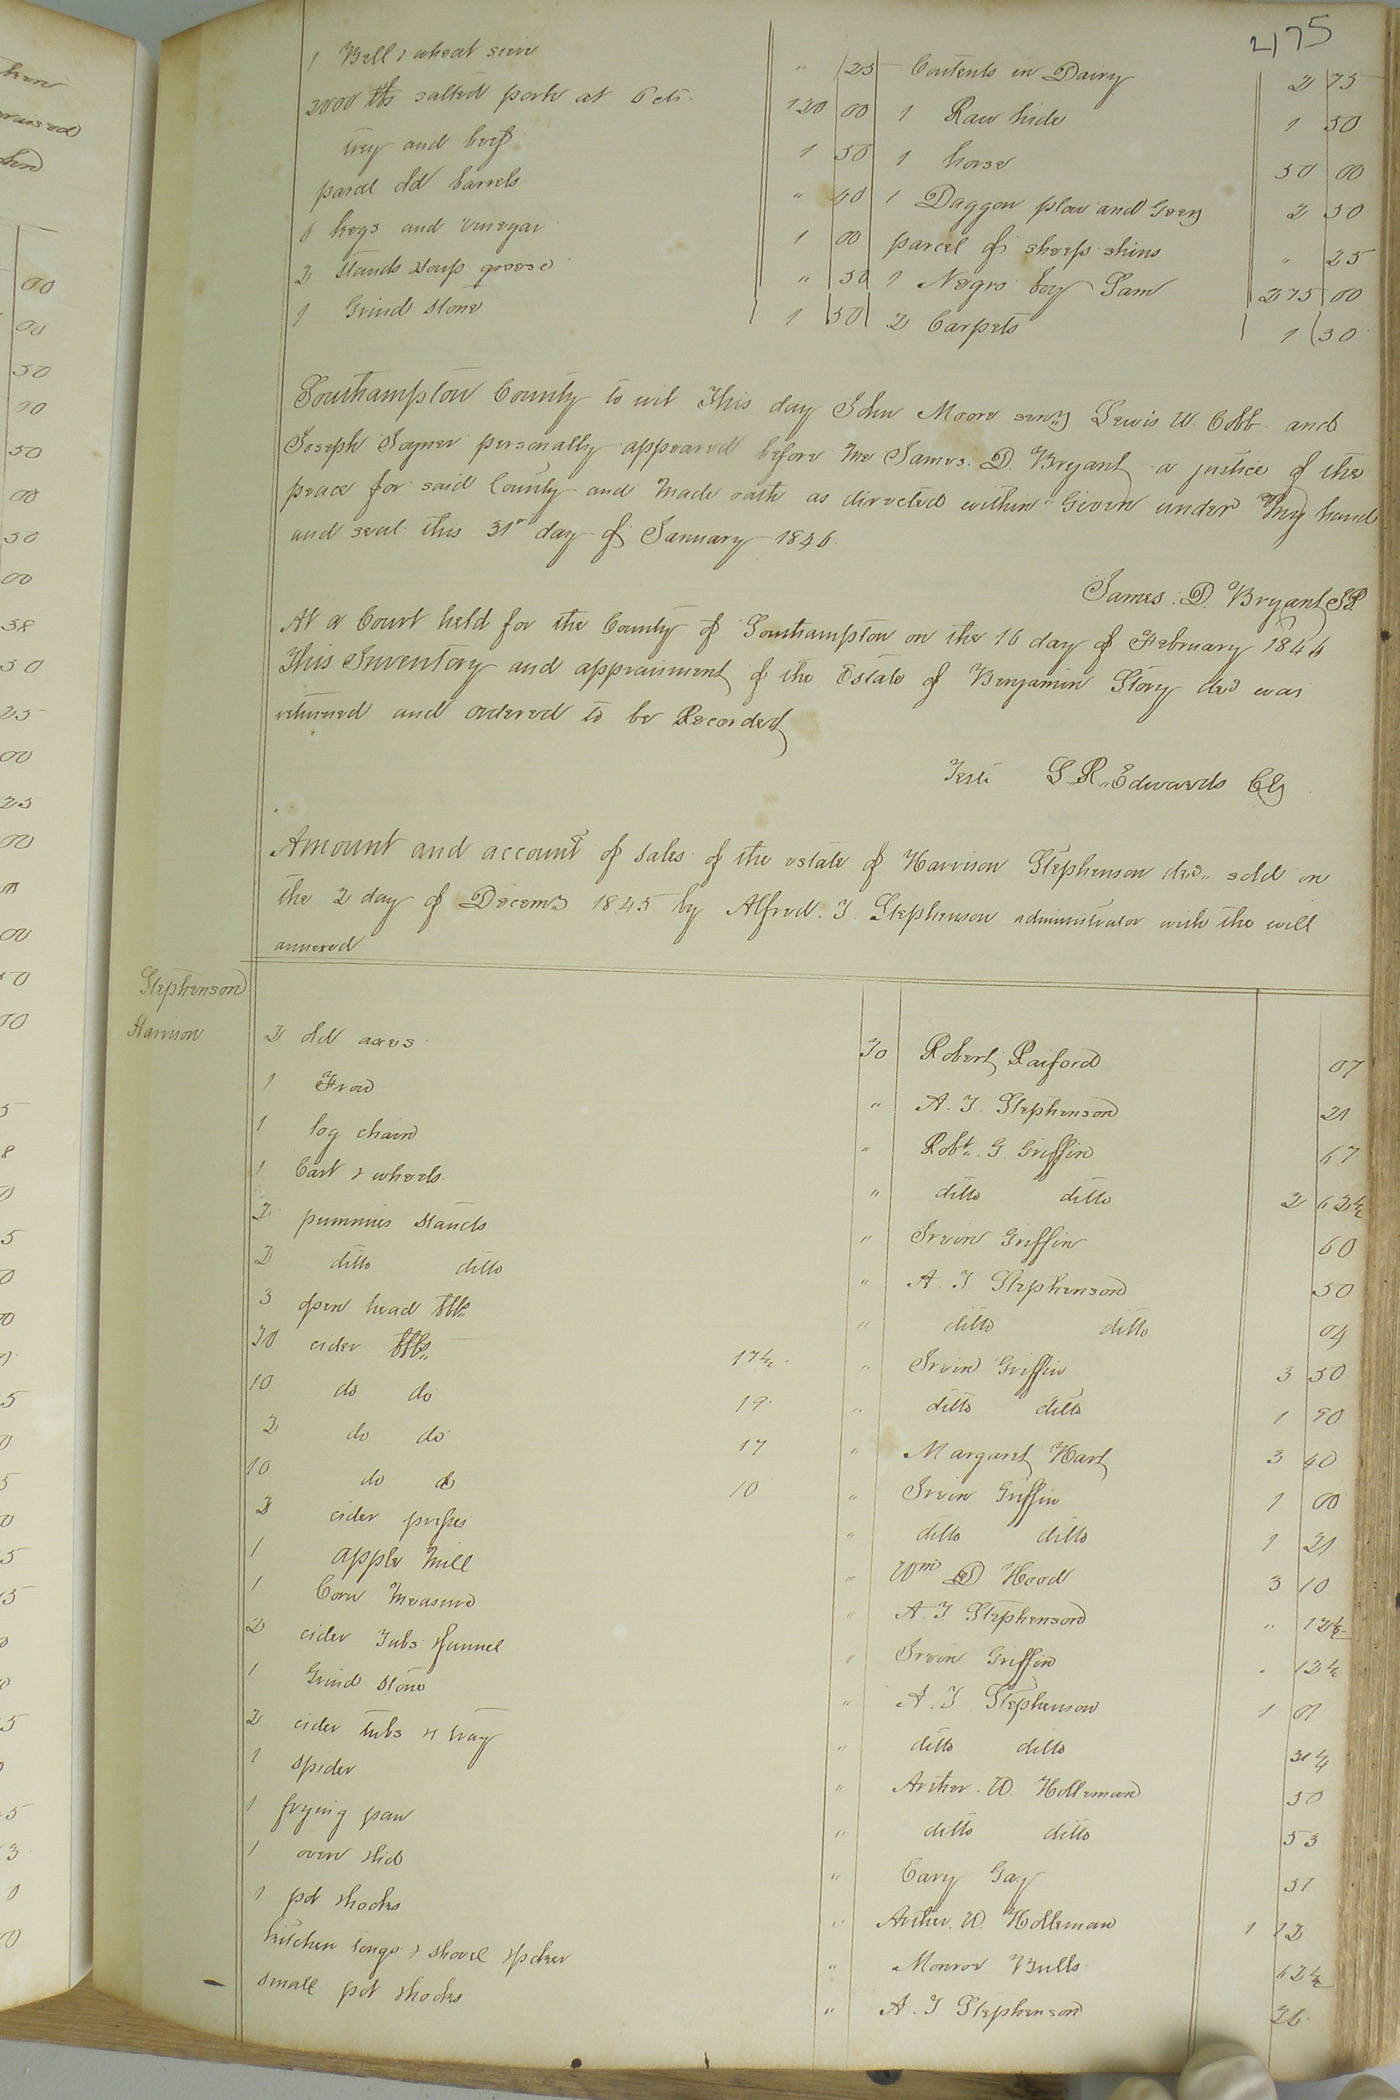 475
1 Bell & wheat sieve " 25 Contents in Dairy 2 75
2000 lbs salted pork at 6 cts. 120 00 1 Raw hide 1 50
trey and beef 1 50 1 horse 50 00
parcel old barrels " 40 1 Daggon plow and Geer 2 50
6 kegs and vinegar 1 00 parcel of sheep skins " 25
2 stands soap greese " 50 1 Negro boy Sam 275 00
1 Grind stone 1 50 2 Carpets 1 50
Southampton County to wit This day John Moore senr Lewis W. Cobb and
Joseph Joyner personally appeared before me James. D. Bryant a justice of the
peace for said County and made oath as directed within Given under my hand
and seal this 31st day of January 1846.
James. D. Bryant JP
At a Court held for the County of Southampton on the 16 day of February 1846
This Inventory and appraisment of the Estate of Benjamin Story decd was
returned and ordered to be Recorded
Teste L. R. Edwards Clk
Amount and account of sales of the estate of Harrison Stephenson decd.. sold on
the 2 day of Decemr 1845 by Alfred. J. Stephenson administrator with the will
annexed
Stephenson
Harrison
2 old axes To Robert Raiford 07
1 Frow " A. J. Stephenson 21
1 log chain " Robt. G. Griffin 67
1 Cart & wheels " ditto ditto 2 62½
2 pummies stands " Irvin Griffin 60
2 ditto ditto " A. J Stephenson 50
3 open head bbls " ditto ditto 04
20 cider bbls 17½ " Irvin Griffin 3 50
10 do do 19 " ditto ditto 1 90
2 do do 17 " Margaret Hart 3 40
10 do do 10 " Irvin Griffin 1 00
2 cider presses " ditto ditto 1 21
1 apple Mill " Wm D Hood 3 10
1 Corn Measure " A. J Stephenson " 12½
2 cider Tubs & funnel " Irvin Griffin " 12½
1 Grind stone " A. J. Stephenson 1 01
2 cider tubs & tray " ditto ditto 31¼
1 spider " Arther. W. Holleman 50
1 frying pan " ditto ditto 53
1 oven & lid " Cary Gay 51
1 pot & hooks " Arther. W. Holleman 1 12
kitchen tongs & shovel & poker " Monroe Bulls 62½
small pot & hooks " A. J Stephenson 26